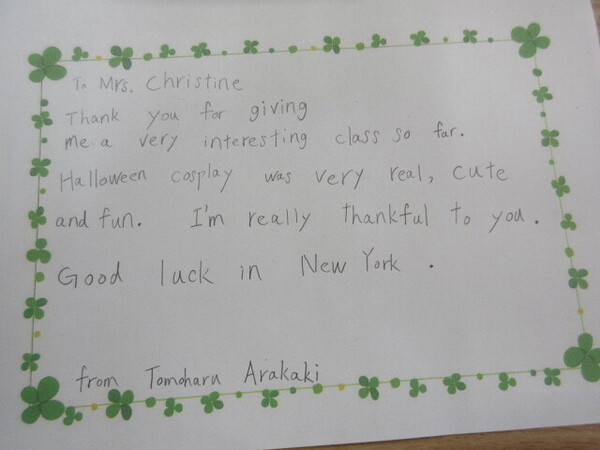 To Mrs. Christine
Thank you for giving
me a very interesting class so far.
Halloween cosplay was very real, cute
and fun. I'm really thankful to you.
Good luck in New York.
from Tomoharu Arakaki